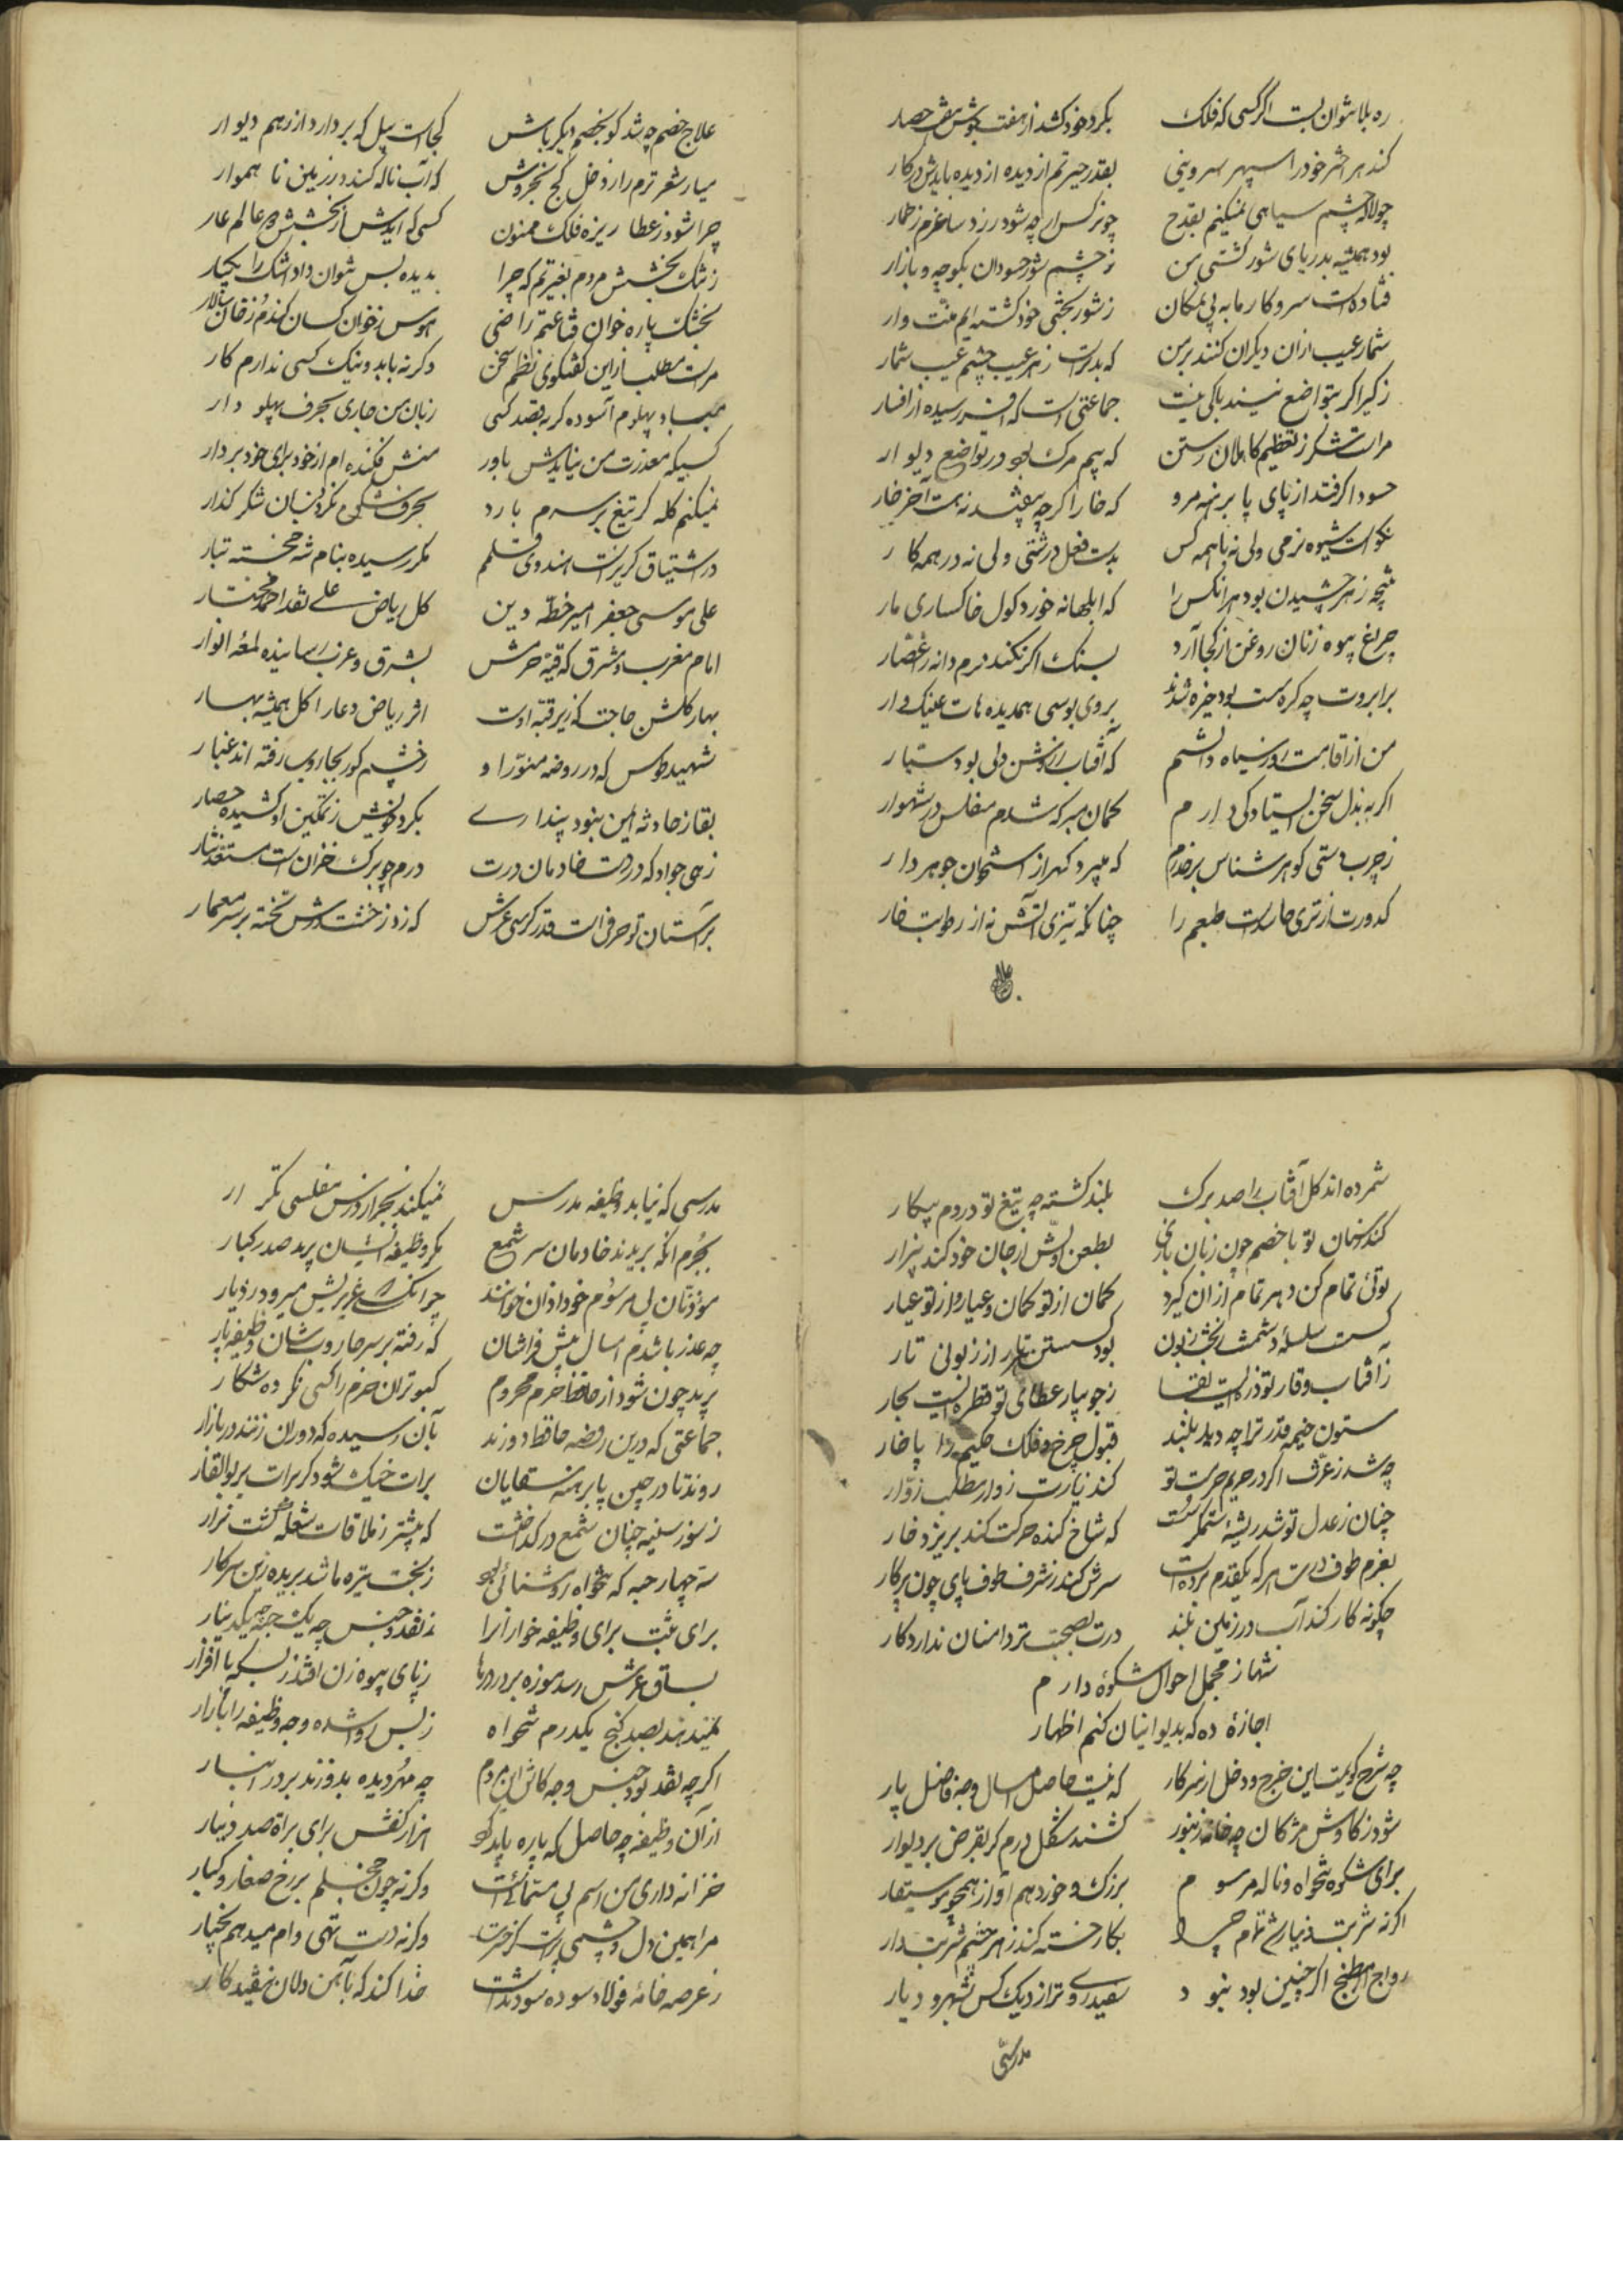 ره بلا نتوان بست اگر کسی که فلک بگرد خود کشد از هفت جوش سقف حصار
کند هر اختر خود را سپهر سروینی بقدر حیرتم از دیده از دیده بایدش در کار
چو لاله چشم سیاهی نمیکنم بقدح چو نرکس ار چه شود زرد ساغرم ز خمار
بود همیشه بدریای شور کشتی من ز چشم شور حسودان بکوچه و بازار
فتاده است سر و کار ما به بی نمکان ز شور بختی خود کشته ایم منّت دار
شمار عیب ازان دیکران کنند بر من که بدتر است ز هر عیب چشم عیب شمار
ز کبر اکر بتواضع نیند باکی نیست جماعتی است که افسر رسیده از افسار
مراست شکر ز تعظیم کاهلان رستن که بیم مرک بود در تواضع دیوار
حسود اکر فتد از پای پا برهنه مرو که خار اکر چه بیفتد ز پاست آخر خار
نکوست شیوه نرمی ولی نه با همه کس بدست فعل درشتی ولی نه در همه کار
نتیجه زهر چشیدن بود هر انکس را که ابلهانه خورد کول خاکساری مار
چراغ بیوه زنان روغن از کجا آرد بسنک اکر نکند نرم دانه را عصّار
برابروت چه کره است بود خیره شدند بروی بوسی همدیده هات عینک وار
من از اقامت روز سیاه دانستم که آفتاب از روشن دلی بود ستیار
اکر به بذل سخن ایستادکی دارم کمان مبر که شدم مفلس در شهوار
ز چرب دستی کوهر شناس بر خودم که میبرد کهر از استخوان جوهر دار
کدورت از تری حاسد است طبعم را چنانکه تیزی آتش نه از رطوبت خار
علاج
علاج خصم چه شد کو بخصم دیکر باش کجاست سیل که بردارد از رهم دیوار
میار شعر ترم را ز دخل کج بخروش که آب ناله کند در زمین ناهموار
چرا شود ز عطا ریزه فلک ممنون کسی که آیدش از بخشش دو عالم عار
ز تنک بخشش مردم بغیرتم که چرا بدیده پس نتوان داد اشک را یکبار
بخشک پاره خوان قناعتم راضی هوس ز خوان کسان کندم ز قان سالار
مراست مطلب ازین کفتکوی نظم سخن وکرنه با بد و نیک کسی ندارم کار
مباد پهلوم آسوده کر بقصد کسی زبان من جاری بحرف پهلو دار
کسیکه معذرت من نیایدش باور منش فکنده ام از خود برای خود بردار
نمیکنم کله کر تیغ بر سرم بارد بحرف شکوه نکردد زبان شکر کذار
در اشتیاق کریزاست اسندوی قلمم مکر رسیده بنام شه خجسته تبار
علی موسی جعفر امیر خطّه دین کل ریاض علی نقد احمد مختار
امام مغرب و مشرق که قبّه حرمش بشرق و غرب رسانیده لمعه انوار
بهار کلشن حاجت که زیر قبّه اوست اثر ریاض دعا را کل همیشه بهار
شهید طوس که در روضه منوّر او ز چشم کور بجاروب رفته اند غبار
بقا ز حادثه ایمن نبود پنداری بکرد خویش ز تمکین او کشیده حصار
زهی جواد که در دست خادمان درت درم چو برک خزان است مستعد نثار
بر آستان تو حرفی است قدر کرسی عرش که زد ز خشت درش تخته بر سر معمار
شمرده اند کل آفتاب را صد برک بلند کشته چه تیغ تو در دم پیکار
کند سنان تو با خصم چون زبان بازی بطعن اوّلش از جان خود کند بیزار
توئی تمام کن دهر تمام از ان کیرد کمان از تو کمان و عیار و از تو عیار
کسست سلسله دشمنت ز بخت زبون بود کسستن تار از زبونی تار
ز آفتاب وقار تو ذره ایست بقا ز جویبار عطای تو قطره ایست بحار
ستون خیمه قدر ترا چه دید بلند قبول چرخ و فلک حکیم را پا خار
چه شد ز عزّت اکر در حریم حرمت تو کند زیارت زوار مطلب زوّار
چنان ز عدل تو شد ریشه ستمکر سست که شاخ کنده حرکت کند بریزد خار
بعزم طوف درت هر که یکقدم برداشت سرش کند ز شرف طوف پای چون پرکار
چکونه کار کند آب در زمین بلند درت بصحبت تردامنان ندارد کار
شها ز مجمل احوال شکوه دارم
اجازه ده که بدیوانیان کنم اظهار
چه شرح کویمت این خرج و دخل از سرکار که نیست حاصل امسال وجه فاضل پار
شود ز کاوش مژکان چه خانه زنبور کشند شکل درم کر بقرض بر دیوار
برای شکوه تنخواه و ناله مرسوم بزرک و خورد هم آواز همچو موسیقار
اکر نه شربت دینار شد تمام چرا بکار خسته کند زهر چشم شربت دار
رواج مطبخ اکر چنین بود نبود سفید روی تر از دیک کس بشهر و دیار
مدرسی
مدرسی که نیابد وظیفه مدرس نمیکند بجز از درس مفلسی تکرار
بجرم انکه بریدند خادمان سر شمع مکر وظیفه ایشان برید صدر کبار
موذنان بی مرسوم خود اذان خوانند چرا نکشت غریش میرود در دیار
چه عذر باشدم امسال پیش فراشان که رفته بر سر جاروب شان وظیفه پار
برید چون شود از حافظ حرم محروم کبوتران حرم را کسی نکرده شکار
جماعتی که درین روضه حافظ دورند بآن رسیده که دوران زنند در بازار
روند تا در چین پا برهنه سقایان برات خیک شود کر برات بر بلغار
ز سوز سینه چنان شمع در کداخت که پیشتر ز ملاقات شعله کشت نزار
سه چهار حبه که تنخواه روشنائی بود ز بخت تیره ما شد بریده زین سرکار
برای ثبت برای وظیفه خواران را ز نقد و جنس چه یک حبه چه یکدینار
بساق عرش رسد موزه بر در درها ز پای بیوه زن افتد ز بسکه پا افزار
نمیدهند بصد کنج یکدرم تنخواه ز بس روا شده وجه وظیفه را بازار
اکرچه نقد بود جنس وجه کاش این مردم چه مهر دیده بدوزند بر در انبار
از آن وظیفه چه حاصل که پاره باید کرد هزار کفش برای براة صد دینار
خزانه داری من اسم بی مسمّائیست وکرنه چون خجلم بر رخ صغار و کبار
مرا همین دل و چشمی پر است کر خزنست وکرنه دست تهی وام میدهم بچنار
ز عرصه خانه فولاد سوده سود نداشت خدا کند که بآهن دلان نیفتد کار